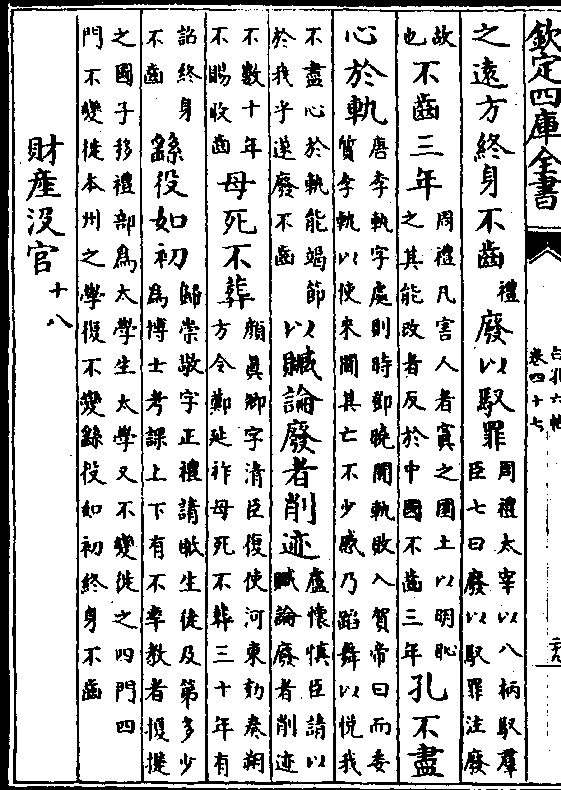 欽定四庫全書
白孔六帖
卷四十七
之遠方終身不齒禮廢以馭罪周禮太宰以八柄馭羣
臣七曰廢以馭罪注廢
故
也不齒三年周禮凡害人者寘之圜土以明恥
之其能改者反於中國不齒三年孔不盡
心於軌唐李軌字處則時鄧曉聞軌敗入賀帝曰而委
質李軌以使來聞其亡不少慼乃蹈舞以悅我
不盡心於軌能竭節
於我乎遂廢不齒以贓論廢者削迹盧懷慎臣請以
贓論廢者削迹
不數十年
不賜收齒母死不葬顔真卿字清臣復使河東劾奏朔
方令鄭延祚母死不葬三十年有
詔終身
不齒繇役如初歸崇敬字正禮請敕生徒及第多少
為博士考課上下有不率教者檟撻
之國子移禮部為太學生太學又不變徙之四門四
門不變徙本州之學復不變繇役如初終身不齒
財產沒官十八